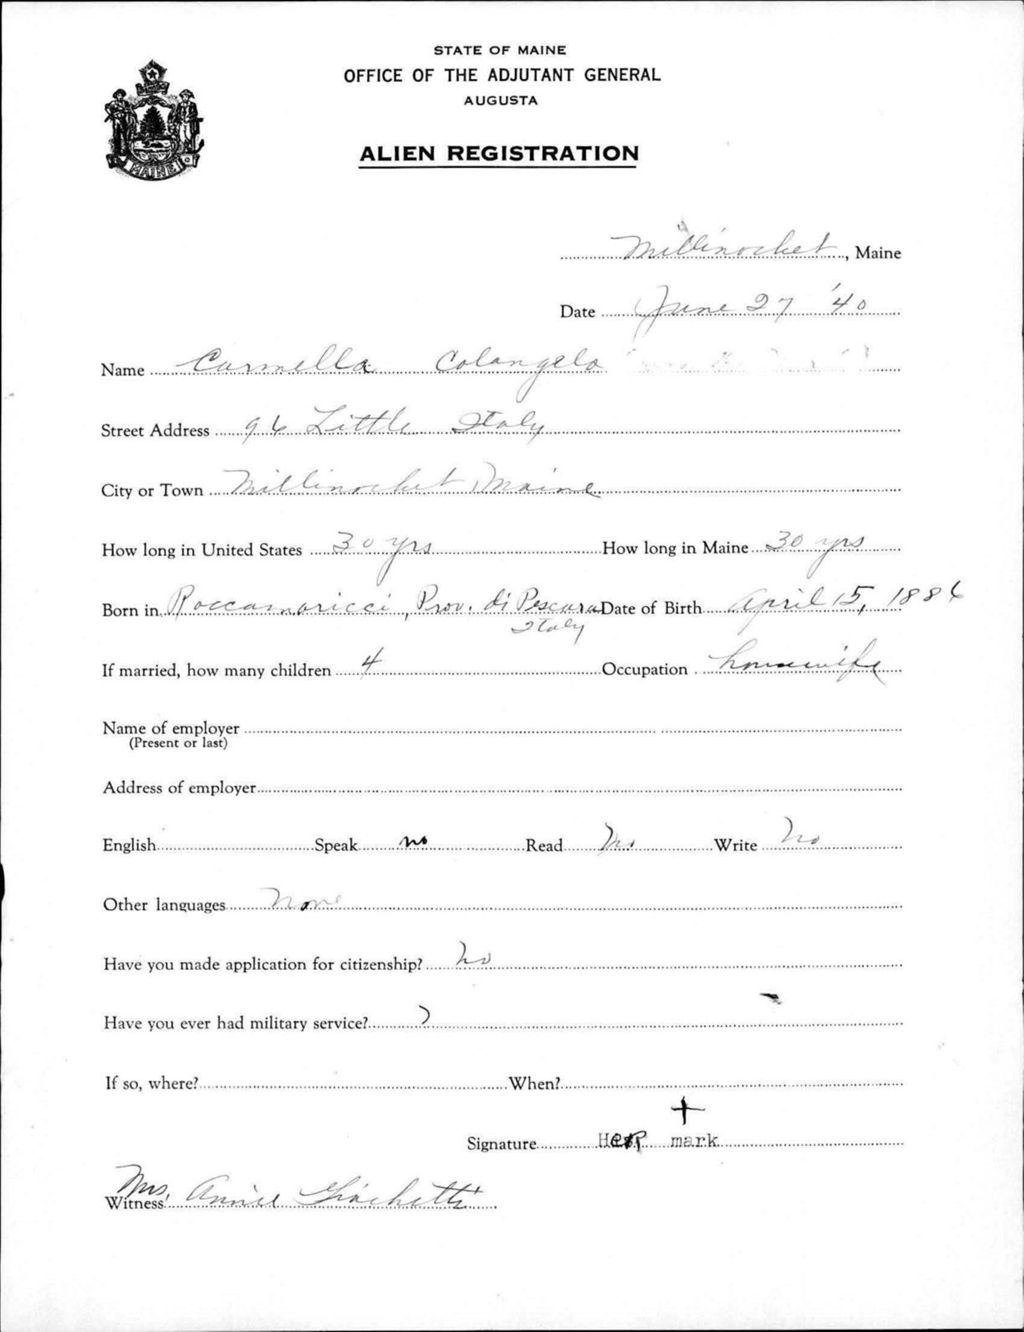 STATE OF MAINE
OFFICE OF THE ADJUTANT GENERAL
AUGUSTA
ALIEN REGISTRATION
MAINE
Millinocket, Maine
Date June 27 '40
Name Carmella Colangelo
Street Address 96 Little Italy
City or Town Millinocket, Maine
How long in United States 30 yrs How long in Maine 30 yrs
Born in Roccamoricci, Prov. di Pescara Date of Birth April 15, 1886
Italy
If married, how many children 4 Occupation housewife
Name of employer
(Present or last)
Address of employer
English Speak no Read No Write No
Other languages None
Have you made application for citizenship? No
Have you ever had military service?
If so, where? When?
+
Signature Her mark
Mrs. Annie
Witness